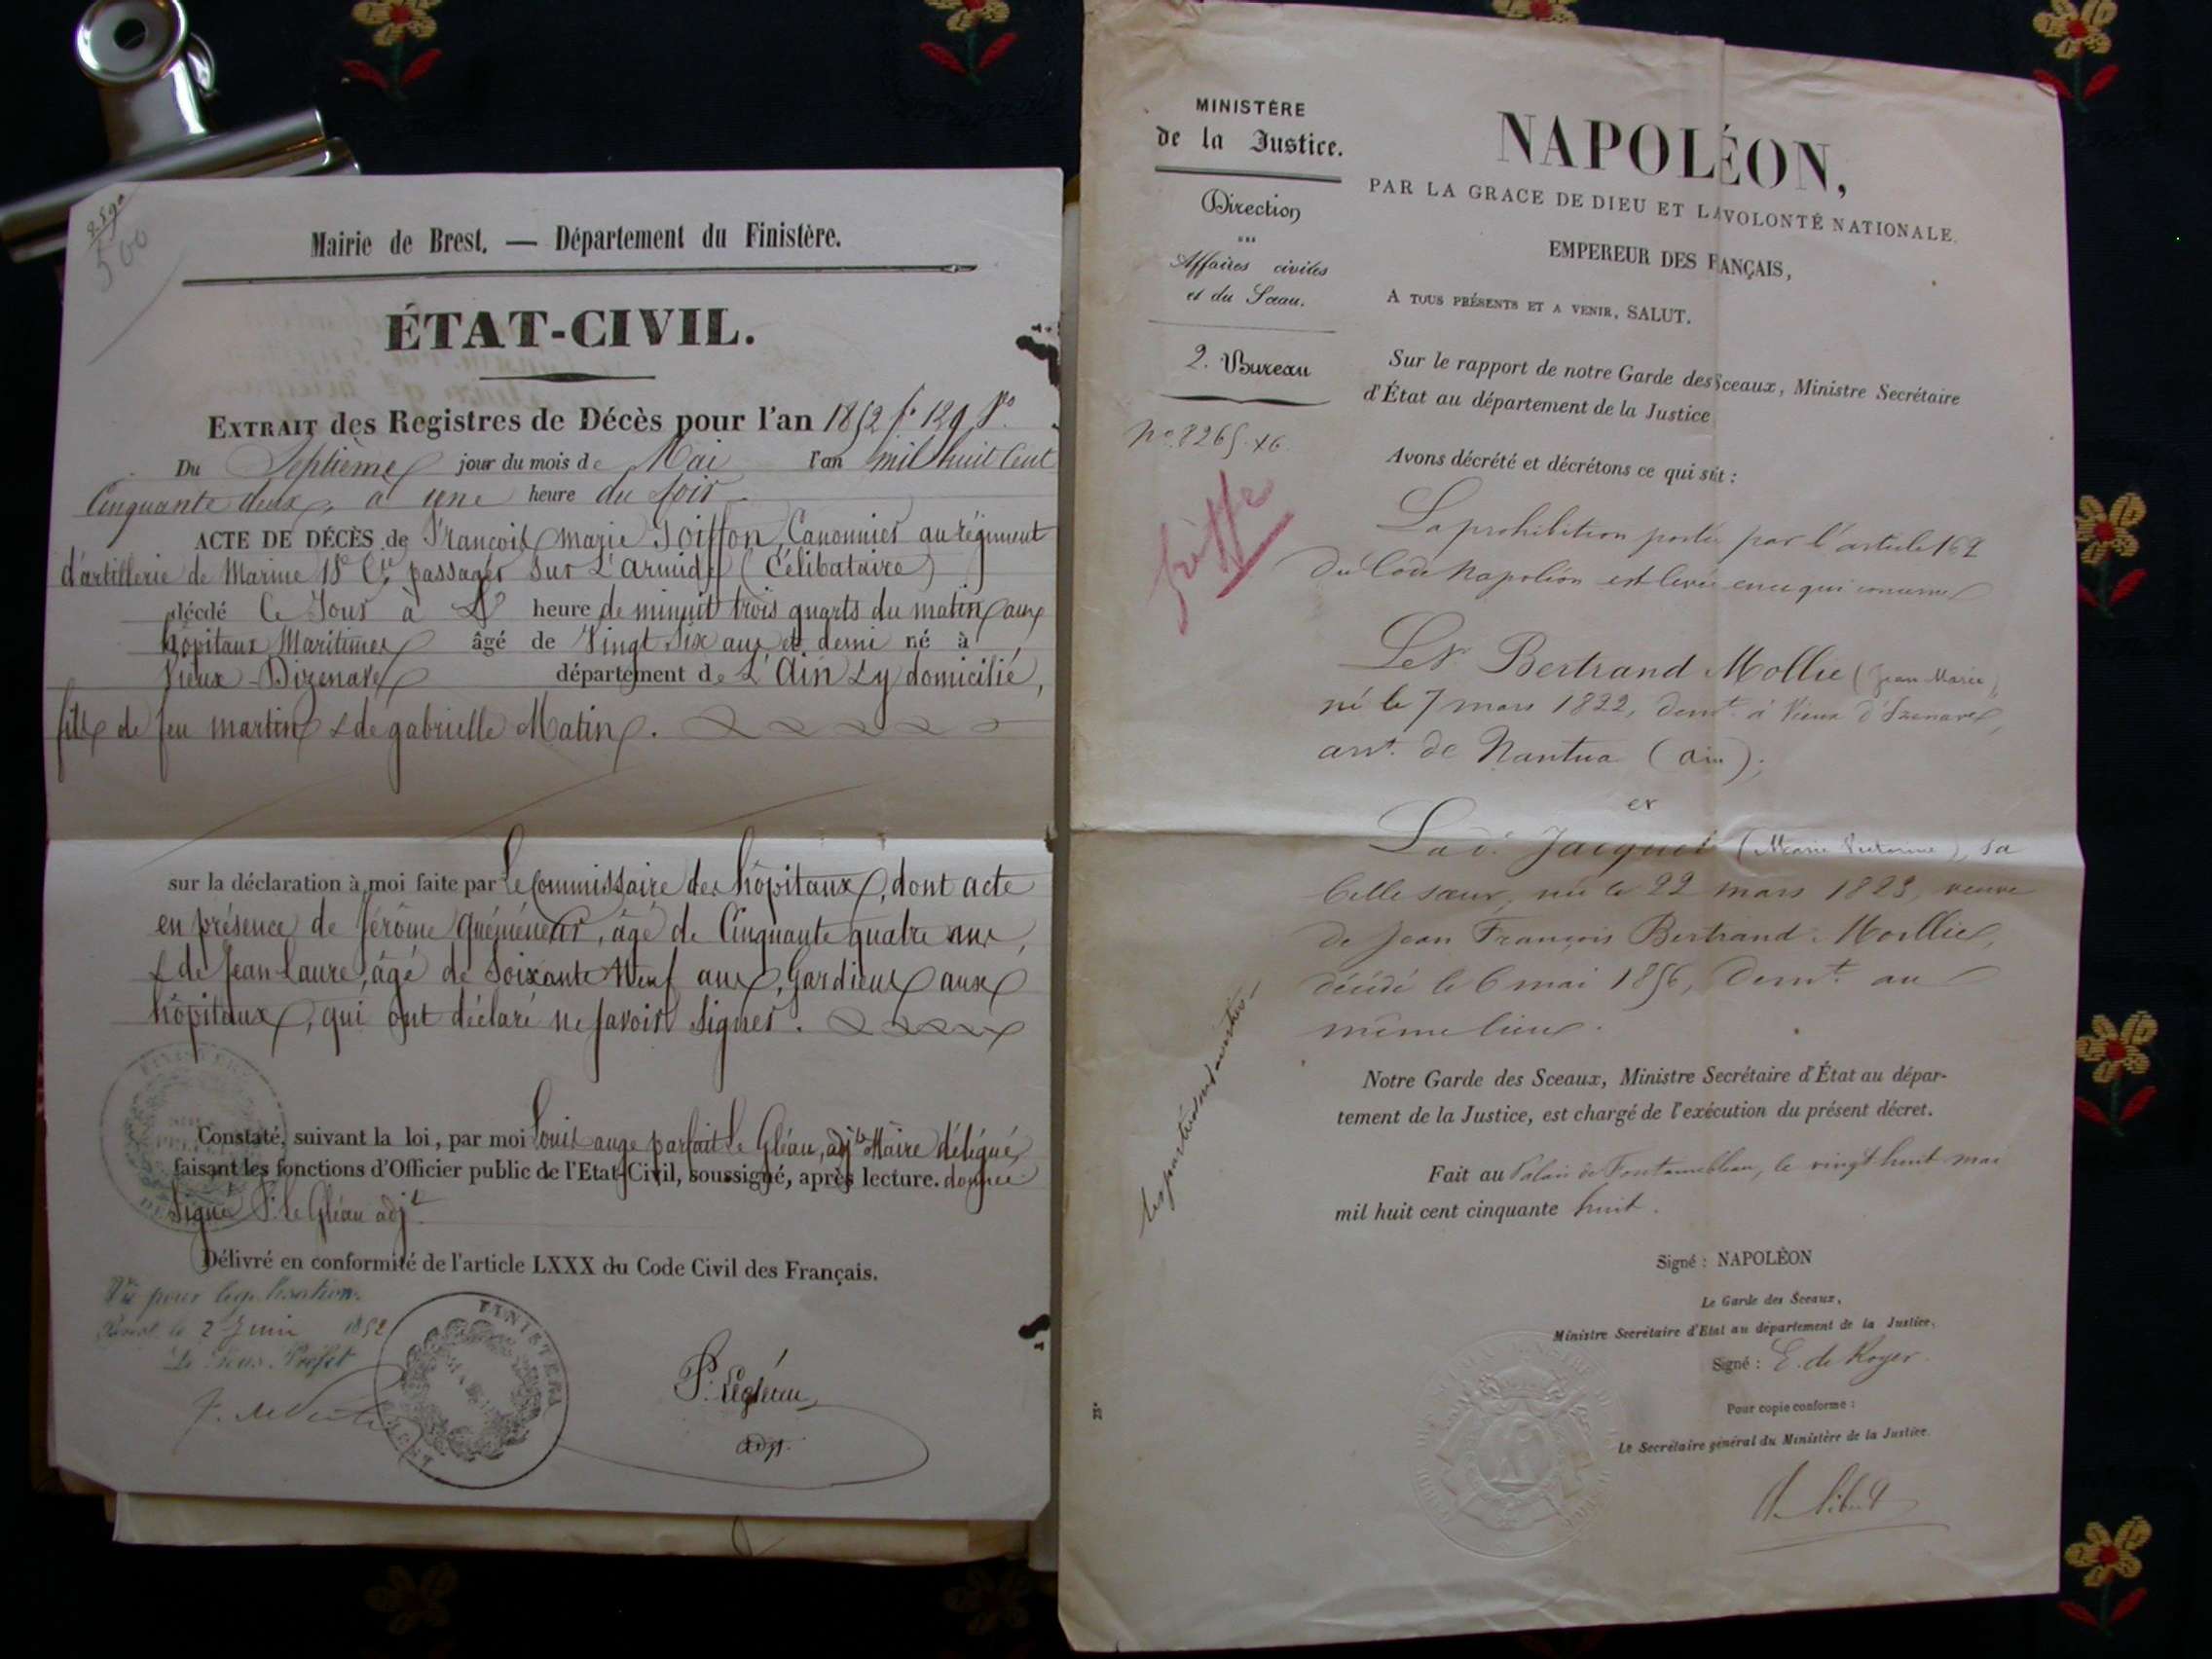 Mairie de Brest. — Département du Finistère.
ÉTAT-CIVIL.
EXTRAIT des Registres de Décès pour l'an 1852 fo 129 Vo
Du Septième jour du mois de Mai l'an mil huit Cent
Cinquante deux, à une heure du soir
ACTE DE DÉCÈS de François Marie Canonnier au régiment
d'artillerie de Marine 18e Cie passager Sur L'armide (Célibataire)
décédé Ce Jour à heure de minuit trois quarts du matin aux
hôpitaux Maritimes âgé de Vingt Six ans et demi né à
Vieux Dizenave département de L'Ain & y domicilié,
fils de feu martin & de gabrielle Matin.
sur la déclaration à moi faite par Le Commissaire des hôpitaux, dont acte
en présence de Jérôme Quéméneur, âgé de Cinquante quatre ans,
& de Jean Laure, âgé de Soixante Neuf ans, Gardiens aux
hôpitaux, qui ont déclaré ne savoir signer.
Constaté, suivant la loi, par moi Louis ange parfait Le Gléau, adjt Maire délégué,
faisant les fonctions d'Officier public de l'Etat-Civil, soussigné, après lecture. donnée
Signé P. le Gléau adjt
Délivré en conformité de l'article LXXX du Code Civil des Français.
Vu pour légalisation.
Brest le 2 Juin 1852
Le Sous Préfet
FINISTERE
P. Legléau
adjt.
MINISTÈRE
de la Justice.
Direction
des
Affaires civiles
et du Sceau.
2. Bureau
No 8265 X6.
NAPOLÉON,
PAR LA GRACE DE DIEU ET LA VOLONTÉ NATIONALE,
EMPEREUR DES FRANÇAIS,
A TOUS PRÉSENTS ET A VENIR, SALUT.
Sur le rapport de notre Garde des Sceaux, Ministre Secrétaire
d'État au département de la Justice
Avons décrété et décrétons ce qui suit :
La prohibition portée par l'article 162
du Code Napoléon est levée en ce qui concerne
Le Sr Bertrand Mollie (Jean Marie),
né le 7 mars 1822, demt. à Vieux d'Izenave,
arrt. de Nantua (Ain);
et
La de. Jacquet (Marie Victorine), sa
belle sœur, née le 22 mars 1823, veuve
de Jean François Bertrand Mollie,
décédé le 6 mai 1856, demt. au
même lieu.
Notre Garde des Sceaux, Ministre Secrétaire d'État au dépar-
tement de la Justice, est chargé de l'exécution du présent décret.
Fait au Palais de Fontainebleau, le vingt huit mai
mil huit cent cinquante huit.
Signé : NAPOLÉON
Le Garde des Sceaux,
Ministre Secrétaire d'Etat au département de la Justice.
Signé : E. de Royer.
Pour copie conforme :
Le Secrétaire général du Ministère de la Justice.